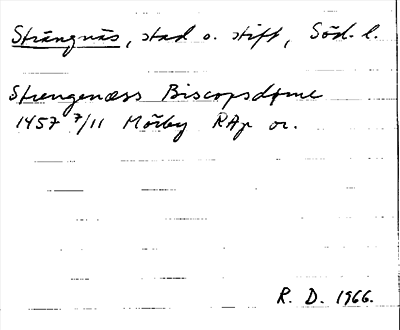 Strängnäs, stad o. stift, Söd. l.
Strengenæss Biscopsdøme
1457 7/11 Mörby RAp or.
R. D. 1966.